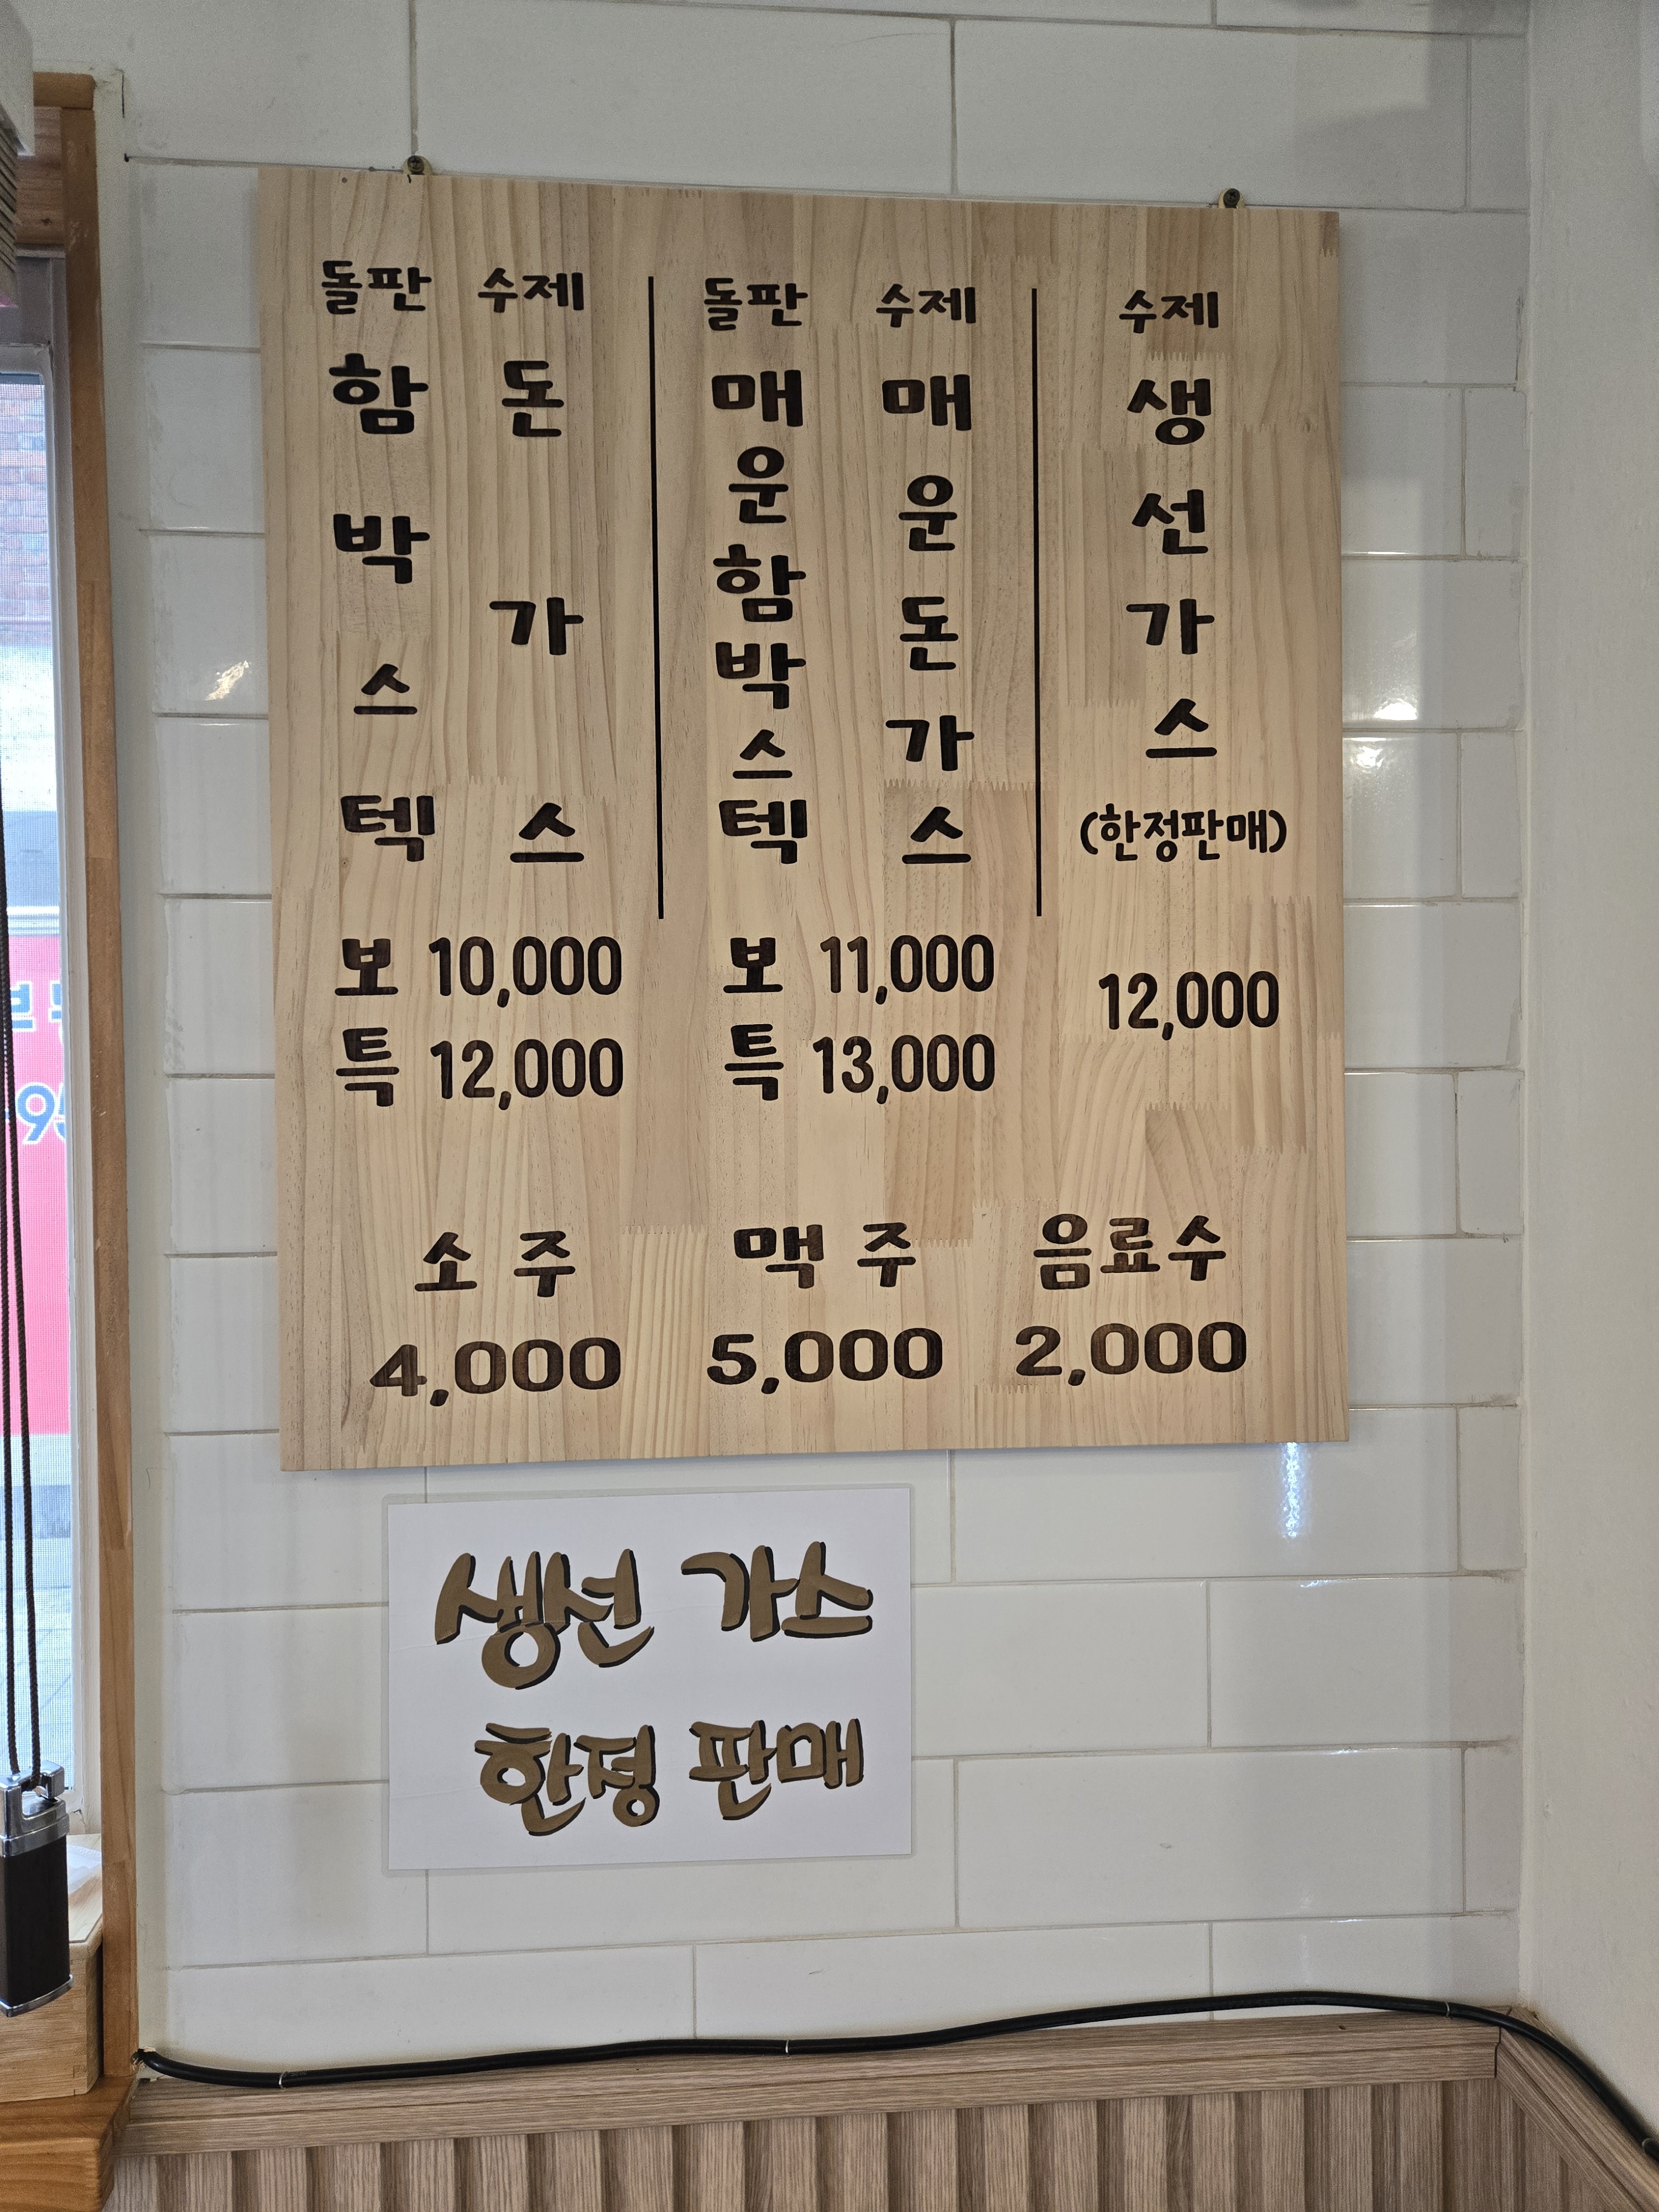 돌판 함박스텍
수제 돈가스
보 10,000
특 12,000
돌판 매운함박스텍
수제 매운돈가스
보 11,000
특 13,000
수제 생선가스
(한정판매)
12,000
소주
4,000
맥주
5,000
음료수
2,000
생선 가스
한정 판매